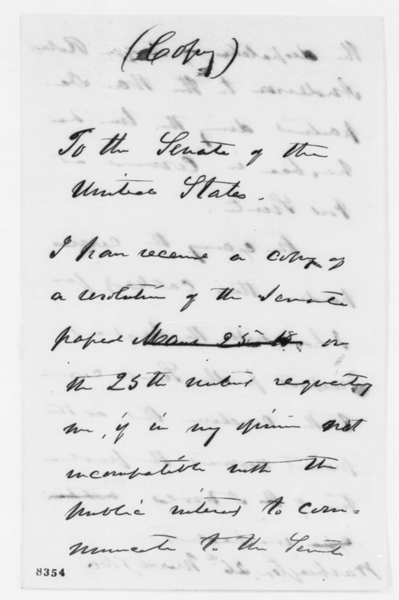 (Copy)
To the Senate of the
United States.
I have received a copy of
a resolution of the Senate
passed March 25th on
the 25th instant requesting
me, if in my opinion not
incompatible with the
public interest to com-
municate to the Senate
8354